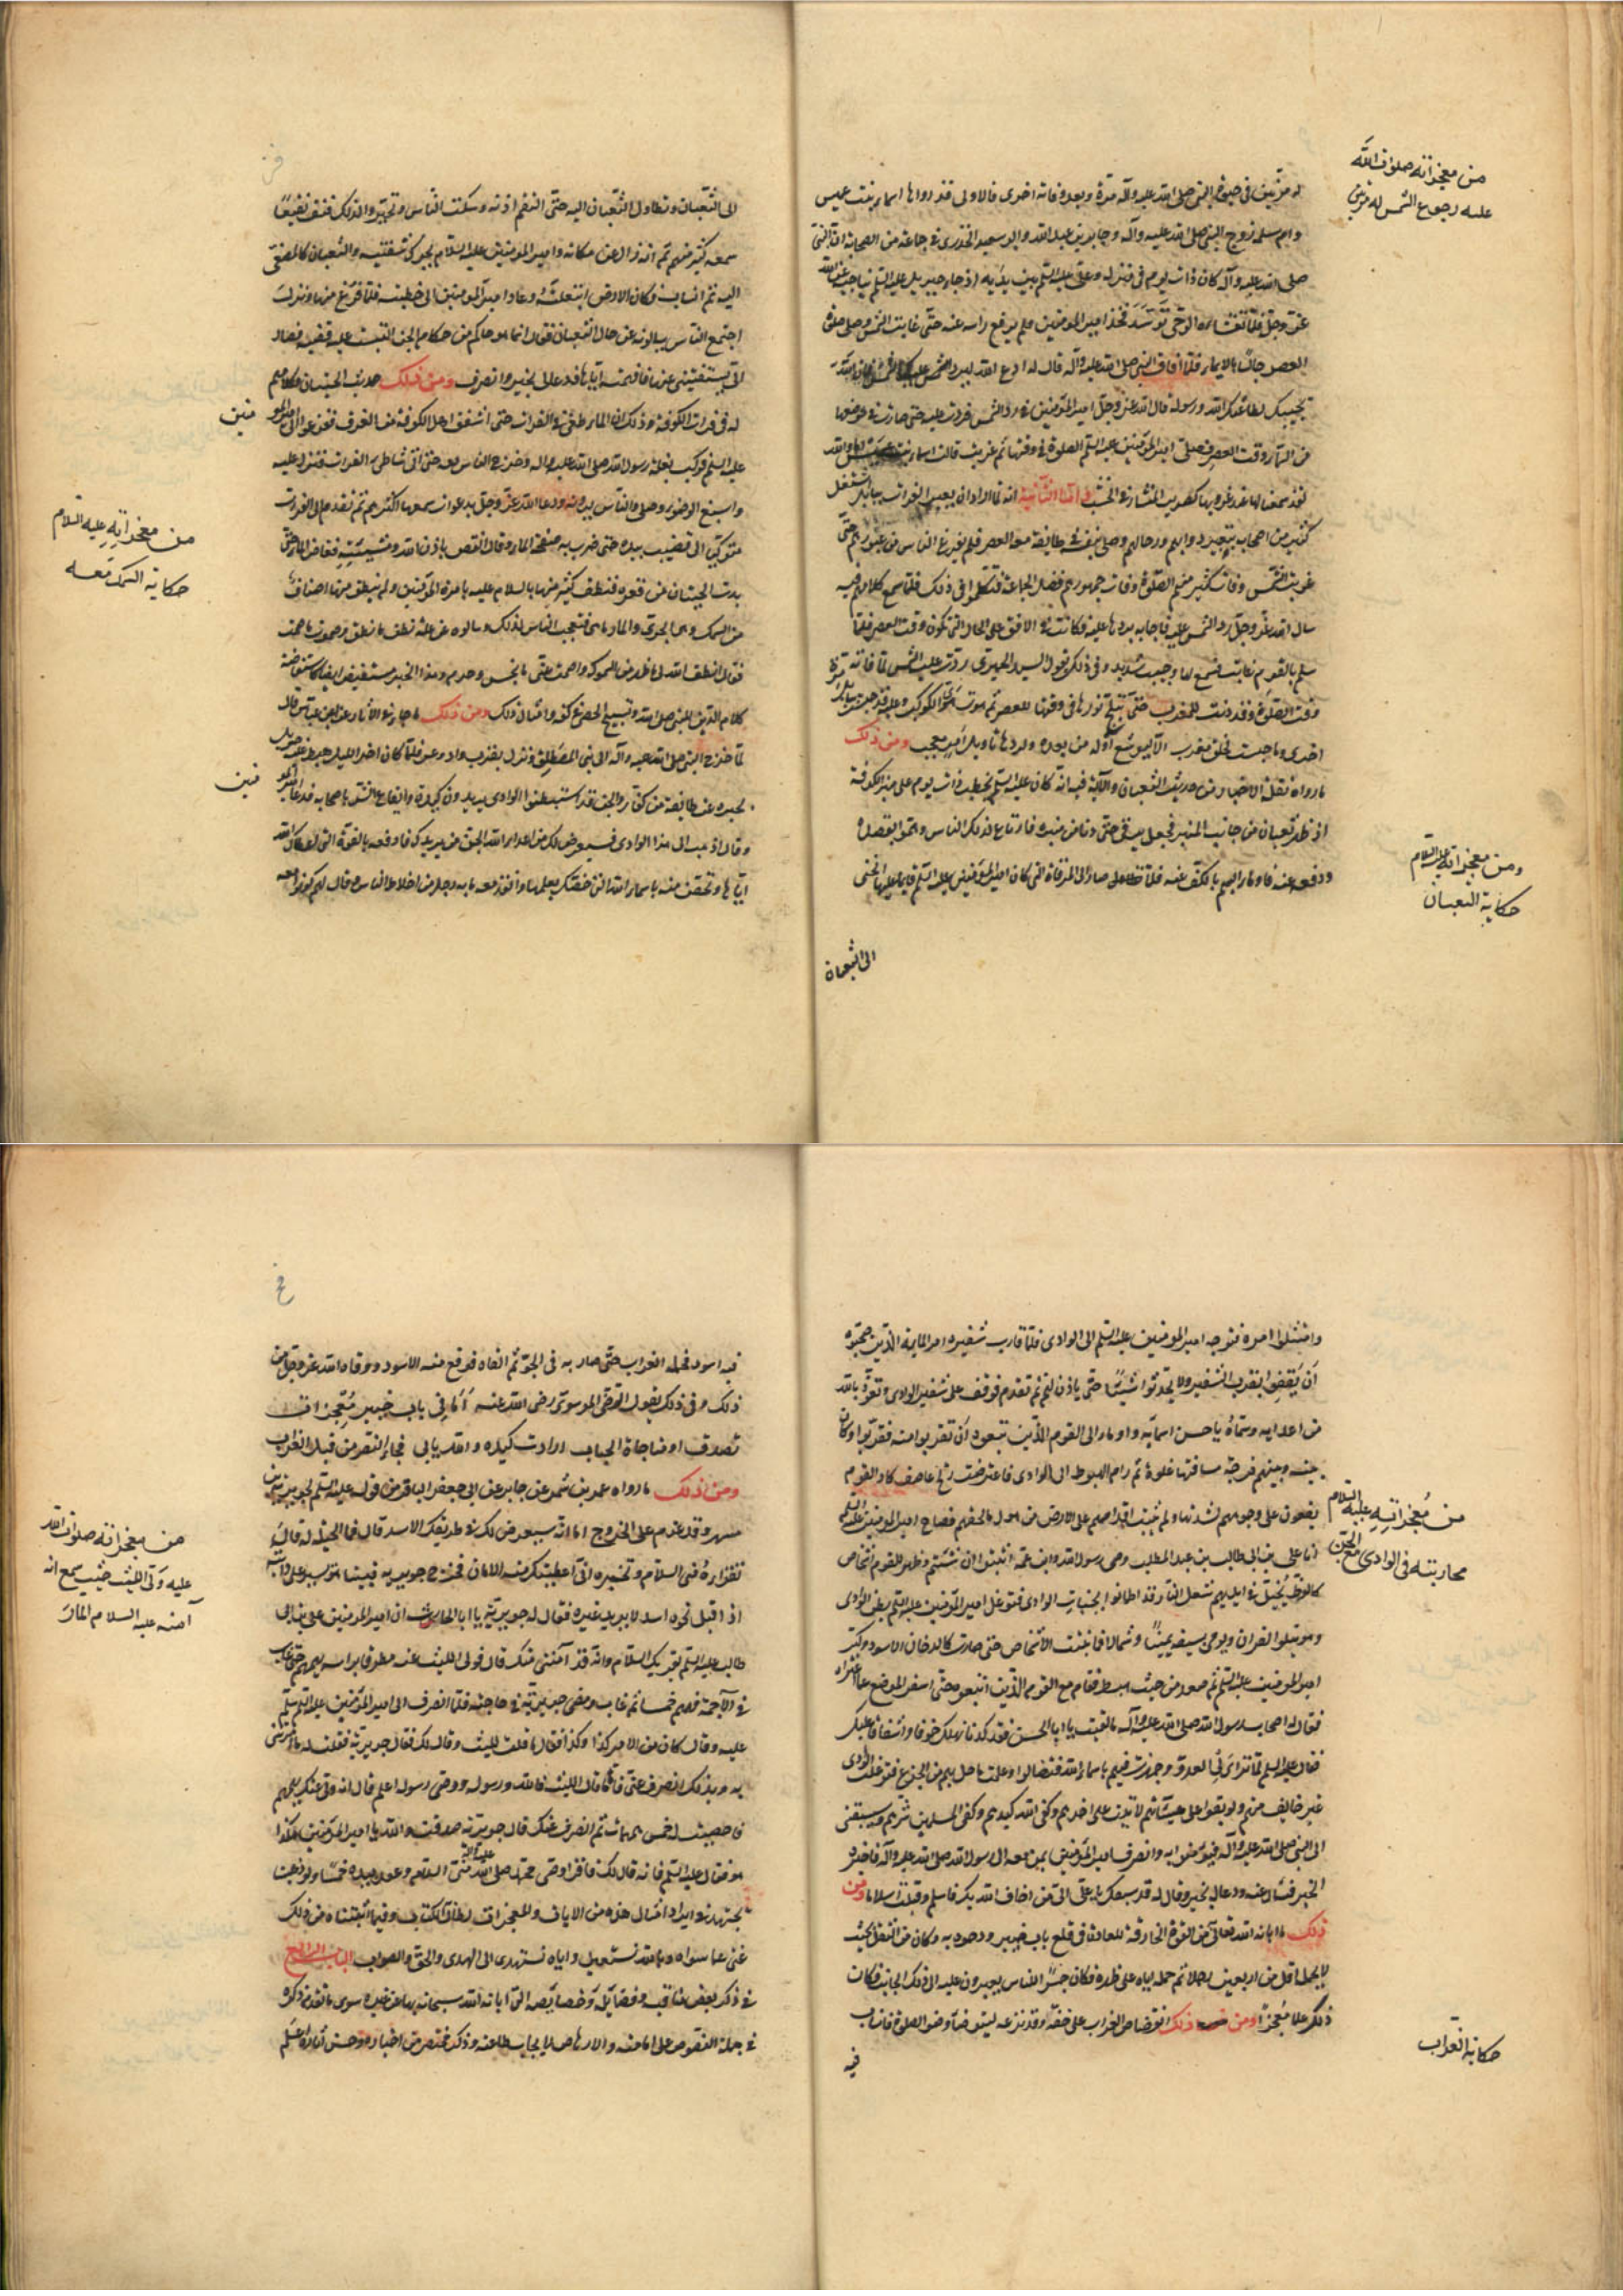 من معجزاته صلوات الله
عليه رجوع الشمس له مرتين
له مرتين في حيوة النبي صلى الله عليه وآله مرة وبعد وفاته اخرى فالاولى قد رواها اسماء بنت عميس
وام سلمه زوج النبي صلى الله عليه وآله وجابر بن عبد الله وابو سعيد الخدري في جماعة من الصحابة ان النبي
صلى الله عليه وآله كان ذات يوم في منزله وعلى عليه السلم بين يديه اذ جاء جبريل عليه السلم يناجيه عن الله
عز وجل فلما تغشاه الوحي توسد فخذ امير المومنين فلم يرفع راسه عنه حتى غابت الشمس وصلى صلوة
العصر جالسا بالايماء فلما افاق النبي صلى الله عليه وآله قال له ادع الله ليرد الشمس عليك فان الله
يجيبك لطاعتك الله ورسوله فسال الله عز وجل امير المؤمنين في رد الشمس فردت عليه حتى صارت في موضعها
من السماء وقت العصر فصلى امير المؤمنين عليه السلم الصلوة في وقتها ثم غربت قالت اسماء بنت عميس ام والله
لقد سمعنا لها عند غروبها كصرير المنشار في الخشب واما الثانية انه لما اراد ان يعبر الفرات ببابل اشتغل
كثير من اصحابه بتعبير دوابهم ورحالهم وصلى بنفسه في طايفة معه العصر فلم يفرغ الناس من عبورهم حتى
غربت الشمس وفات كثير منهم الصلوة وفات جمهورهم فضل الجماعة فتكلموا في ذلك فلما سمع كلامهم فيه
سال الله عز وجل رد الشمس عليه فاجابه بردها عليه فكانت في الافق على الحال التي تكون وقت العصر فلما
سلم بالقوم غابت فسمع لها وجيب شديد وفي ذلك يقول السيد الحميري ردت عليه الشمس لما فاته
وقت الصلوة وقد دنت للمغرب حتى تبلج نورها في وقتها للعصر ثم هوت هوى الكوكب وعليه قد حبست ببابل مرة
اخرى وما حبست لخلق مغرب الا ليوشع أوله من بعده ولردها تاويل امر معجب ومن ذلك
ما رواه نقلة الاخبار من حديث الثعبان والآية فيه انه كان عليه السلم يخطب ذات يوم على منبر الكوفة
اذ ظهر ثعبان من جانب المنبر فجعل يرقى حتى دنا من منبره فارتاع لذلك الناس وهموا بقصده
ودفعه عنه فاوما اليهم بالكف عنه فلما صار الى المرقاة التي كان امير المؤمنين عليه السلم قايما عليها انحنى
الى الثعبان
ومن معجزاته عليه السلام
حكاية الثعبان
الى الثعبان وتطاول الثعبان اليه حتى التقم اذنه وسكت الناس وتحيروا لذلك فنق نقيقا
سمعه كثير منهم ثم انه زال عن مكانه وامير المومنين عليه السلام يحرك شفتيه والثعبان كالمصغي
اليه ثم انساب فكان الارض ابتلعته وعاد امير المومنين الى خطبته فلما فرغ منها ونزل
اجتمع الناس يسالونه عن حال الثعبان فقال انما هو حاكم من حكام الجن التبست عليه قضية فصار
الي يستفتيني عنها فافهمته اياها فدعا لي بخير وانصرف ومن ذلك حديث الحيتان وكلامهم
له في فرات الكوفة وذلك ان الماء طغى في الفرات حتى اشفق اهل الكوفة من الغرق ففزعوا الى امير المو منين
عليه السلم فركب بغلة رسول الله صلى الله عليه واله وخرج الناس معه حتى اتى شاطئ الفرات فنزل عليه
واسبغ الوضوء وصلى والناس يرونه ودعا الله عز وجل بدعوات سمعها اكثرهم ثم تقدم الى الفرات
متوكيا الى قضيب بيده حتى ضرب به صفحة الماء وقال انقص باذن الله ومشيته فغاض الماء حتى
بدت الحيتان من قعره فنطق كثير منها بالسلام عليه بامرة المؤمنين ولم ينطق منها اصناف
من السمك وهى الجري والمارماهى فتعجب الناس لذلك وسالوه عن علة نطق ما نطق وصموت ما صمت
فقال انطق الله لي ما طهر من السموك واصمت عني ما نجس وحرم وهذا الخبر مستفيض ايضا كاستفاضة
كلام الذيب للنبي صلى الله وتسبيح الحصى في كفه وامثال ذلك ومن ذلك ما جاء في الاثار عن ابن عباس قال
لما خرج النبي صلى الله عليه وآله الى بني المصطلق ونزل بقرب واد وعر فلما كان اخر الليل هبط عليه جبريل
يخبره عن طايفة من كفار الجن قد استبطنوا الوادي يريدون كيده وايقاع الشر باصحابه فدعا امير المو منين
وقال اذهب الى هذا الوادي فسيعرض لك من اعداء الله الجن من يريدك فادفعه بالقوة التي اعطاك الله
اياها وتحصن منه باسماء الله التي خصك بعلمها وانفذ معه ماية رجل من اخلاط الناس وقال لهم كونوا معه
من معجزاته عليه السلام
حكاية السمك معه
وامتثلوا امره فتوجه امير المومنين عليه السلم الى الوادي فلما قارب شفيره امر الماية الذين صحبوه
أن يقفوا بقرب الشفير ولا يحدثوا شيئا حتى ياذن لهم ثم تقدم فوقف على شفير الوادي وتعوذ بالله
من اعدايه وسماه باحسن اسمايه واوما الى القوم الذين تبعوه أن تقربوا منه فقربوا وكان
بينه وبينهم فرجة مسافتها غلوة ثم رام الهبوط الى الوادي فاعترضت ريح عاصف كاد القوم
يقعون على وجوههم لشدتها ولم تثبت اقدامهم على الارض من هول ما لحقهم فصاح امير المومنين عليه السلم
انا علي بن ابي طالب بن عبد المطلب وصي رسول الله وابن عمه اثبتوا ان شئتم وظهر للقوم اشخاص
كالزط يخيل في ايديهم شعل النار قد اطمانوا بجنبات الوادي فتوغل امير المؤمنين عليه السلم بطن الوادي
وهو يتلوا القران ويومى بسيفه يمينا وشمالا فما لبثت الأشخاص حتى صارت كالدخان الاسود وكبر
امير المومنين عليه السلم ثم صعد من حيث هبط فقام مع القوم الذين اتبعوه حتى اسفر الموضع عما اعتراه
فقال له اصحاب رسول الله صلى الله عليه وآله ما لقيت يا ابا الحسن فقد كدنا نهلك خوفا واشفاقا عليك
فقال عليه السلم لما تراى لي العدو وجهرت فيهم باسماء الله فتضالوا وعلمت ما حل بهم من الجزع فتوغلت الوادي
غير خايف منهم ولو بقوا على هيئاتهم لاتيت على اخرهم وكفى الله كيدهم وكفى المسلمين شرهم وسيسبقني
الى النبي صلى الله عليه وآله بقيتهم فيؤمنوا به وانصرف امير المؤمنين بمن معه الى رسول الله صلى الله عليه وآله فاخبره
الخبر فسرى عنه ودعا له بخير وقال له قد سبقك يا علي الي من اخافه الله بك فاسلم وقبلت اسلامه ومن
ذلك ما ابانه الله تعالى من القوة الخارقة للعادة في قلع باب خيبر ودحوه به وكان من الثقل بحيث
لا يحمله اقل من اربعين رجلا ثم حمله اياه على ظهره فكان جسرا للناس يعبرون عليه الى ذلك الجانب فكان
ذلك علما معجزا ومن ذلك انقضاض الغراب على خفه وقد نزعه ليتوضا وضو الصلوة فانساب
فيه
من معجزاته عليه السلام
محاربته في الوادي مع الجن
حكاية الغراب
فيه اسود فحمله الغراب حتى صار به في الجو ثم القاه فوقع منه الاسود ووقاه الله عز وجل من
ذلك وفي ذلك يقول الرضي الموسوي رضي الله عنه أما في باب خيبر معجزات
تصدق او مناجاة الحباب ارادت كيده والله يابى فجاء النصر من قبل الغراب
ومن ذلك ما رواه عمرو بن شمر عن جابر عن ابي جعفر الباقر من قوله عليه السلم لجويرية بن
مسهر وقد عزم على الخروج اما انه سيعرض لك في طريقك الاسد قال فما الحيلة له قال
تقراءه مني السلام وتخبره اني اعطيتك منه الامان فخرج جويرية فبينما هو يسير على دابته
اذ اقبل نحوه اسد لا يريد غيره فقال له جويرية يا ابا الحارث ان امير المومنين علي بن ابي
طالب عليه السلم يقريك السلام وانه قد آمنني منك قال فولى الليث عنه مطرقا براسه يهمهم حتى غاب
في الأجمة فهمهم خمسا ثم غاب ومضى جويرية في حاجته فلما انصرف الى امير المؤمنين عليه السلم سلم
عليه وقال كان من الامر كذا وكذا فقال ما قلت لليث وما قال لك فقال جويرية فقلت له ما امرتني
به وبذلك انصرف عني فاما ما قال الليث فالله ورسوله ووصي رسوله اعلم قال انه ولى عنك يهمهم
فاحصيت له خمس همهمات ثم انصرف عنك قال جويرية صدقت والله يا امير المؤمنين هكذا
هو فقال عليه السلم فانه قال لك فاقرا وصي محمد صلى الله عليه وآله مني السلام وعقد بيده خمسا ولو ذهبت
بجتهد في ايراد امثال هذه من الايات والمعجزات لطال الكتاب وفيما اثبتناه من ذلك
غنى عما سواه وبالله نستعين واياه نستهدي الى الهدى والحق والصواب الباب الرابع
في ذكر بعض مناقبه وفضايله وخصايصه التي ابانه الله سبحانه بها عن غيره سوى ما تقدم ذكره
في جملة النصوص على امامته والارهاص لايجاب طاعته وذكر مختصر من اخباره وحسن آثاره عليه السلم
من معجزاته صلوات الله
عليه وَلّى الليث حيث سمع انه
آمنه عليه السلام المارّ